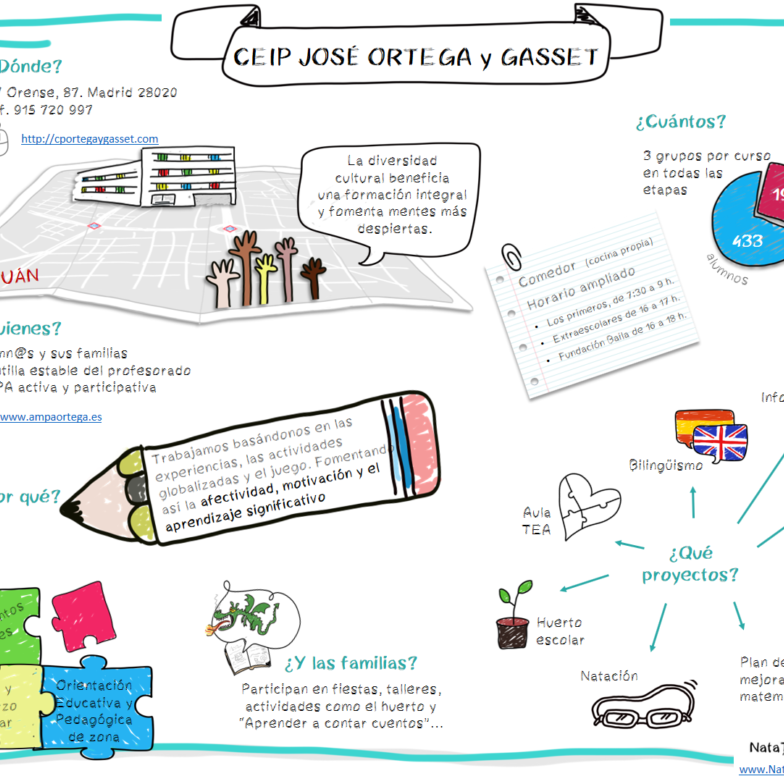 CEIP JOSÉ ORTEGA y GASSET
Dónde?
Orense, 87. Madrid 28020
f. 915 720 997
http://cportegaygasset.com
La diversidad
cultural beneficia
una formación integral
y fomenta mentes más
despiertas.
UÁN
¿Cuántos?
3 grupos por curso
en todas las
etapas
19
433
alumnos
Comedor (cocina propia)
Horario ampliado
• Los primeros, de 7:30 a 9 h.
• Extraescolares de 16 a 17 h.
• Fundación Balia de 16 a 18 h.
uienes?
mn@s y sus familias
tilla estable del profesorado
PA activa y participativa
www.ampaortega.es
or qué?
Trabajamos basándonos en las
experiencias, las actividades
globalizadas y el juego. Fomentando
así la afectividad, motivación y el
aprendizaje significativo
Info
Bilingüismo
Aula
TEA
¿Qué
proyectos?
Huerto
escolar
Natación
Plan de
mejora
matem
ntos
es
y
zo
ar
Orientación
Educativa y
Pedagógica
de zona
¿Y las familias?
Participan en fiestas, talleres,
actividades como el huerto y
"Aprender a contar cuentos"...
www.Nat